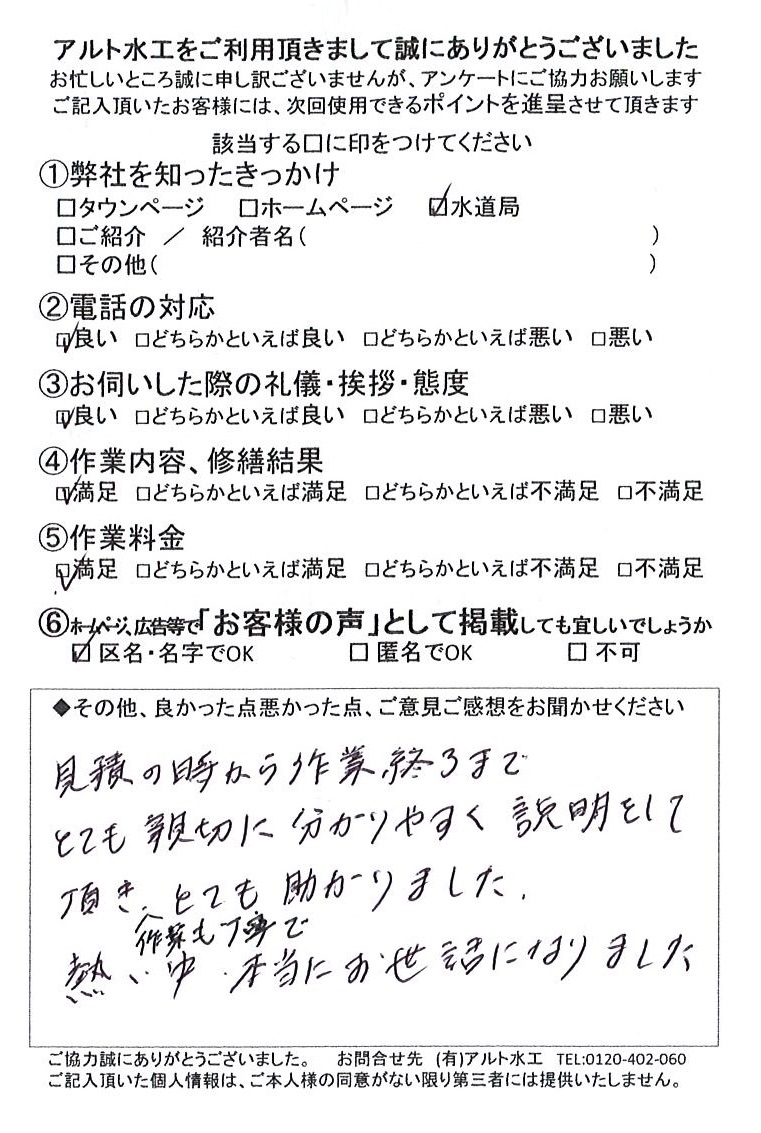 アルト水工をご利用頂きまして誠にありがとうございました
お忙しいところ誠に申し訳ございませんが、アンケートにご協力お願いします
ご記入頂いたお客様には、次回使用できるポイントを進呈させて頂きます
該当する□に印をつけてください
①弊社を知ったきっかけ
□タウンページ □ホームページ ☑水道局
□ご紹介 ／ 紹介者名( )
□その他( )
②電話の対応
☑良い □どちらかといえば良い □どちらかといえば悪い □悪い
③お伺いした際の礼儀・挨拶・態度
☑良い □どちらかといえば良い □どちらかといえば悪い □悪い
④作業内容、修繕結果
☑満足 □どちらかといえば満足 □どちらかといえば不満足 □不満足
⑤作業料金
☑満足 □どちらかといえば満足 □どちらかといえば不満足 □不満足
⑥ホームページ、広告等で「お客様の声」として掲載しても宜しいでしょうか
☑ 区名・名字でOK □ 匿名でOK □ 不可
◆その他、良かった点悪かった点、ご意見ご感想をお聞かせください
見積の時から作業終るまで
とても親切に分かりやすく説明をして
頂き、とても助かりました.
作業も丁寧で
熱い中、本当にお世話になりました
ご協力誠にありがとうございました。 お問合せ先 (有)アルト水工 TEL:0120-402-060
ご記入頂いた個人情報は、ご本人様の同意がない限り第三者には提供いたしません。